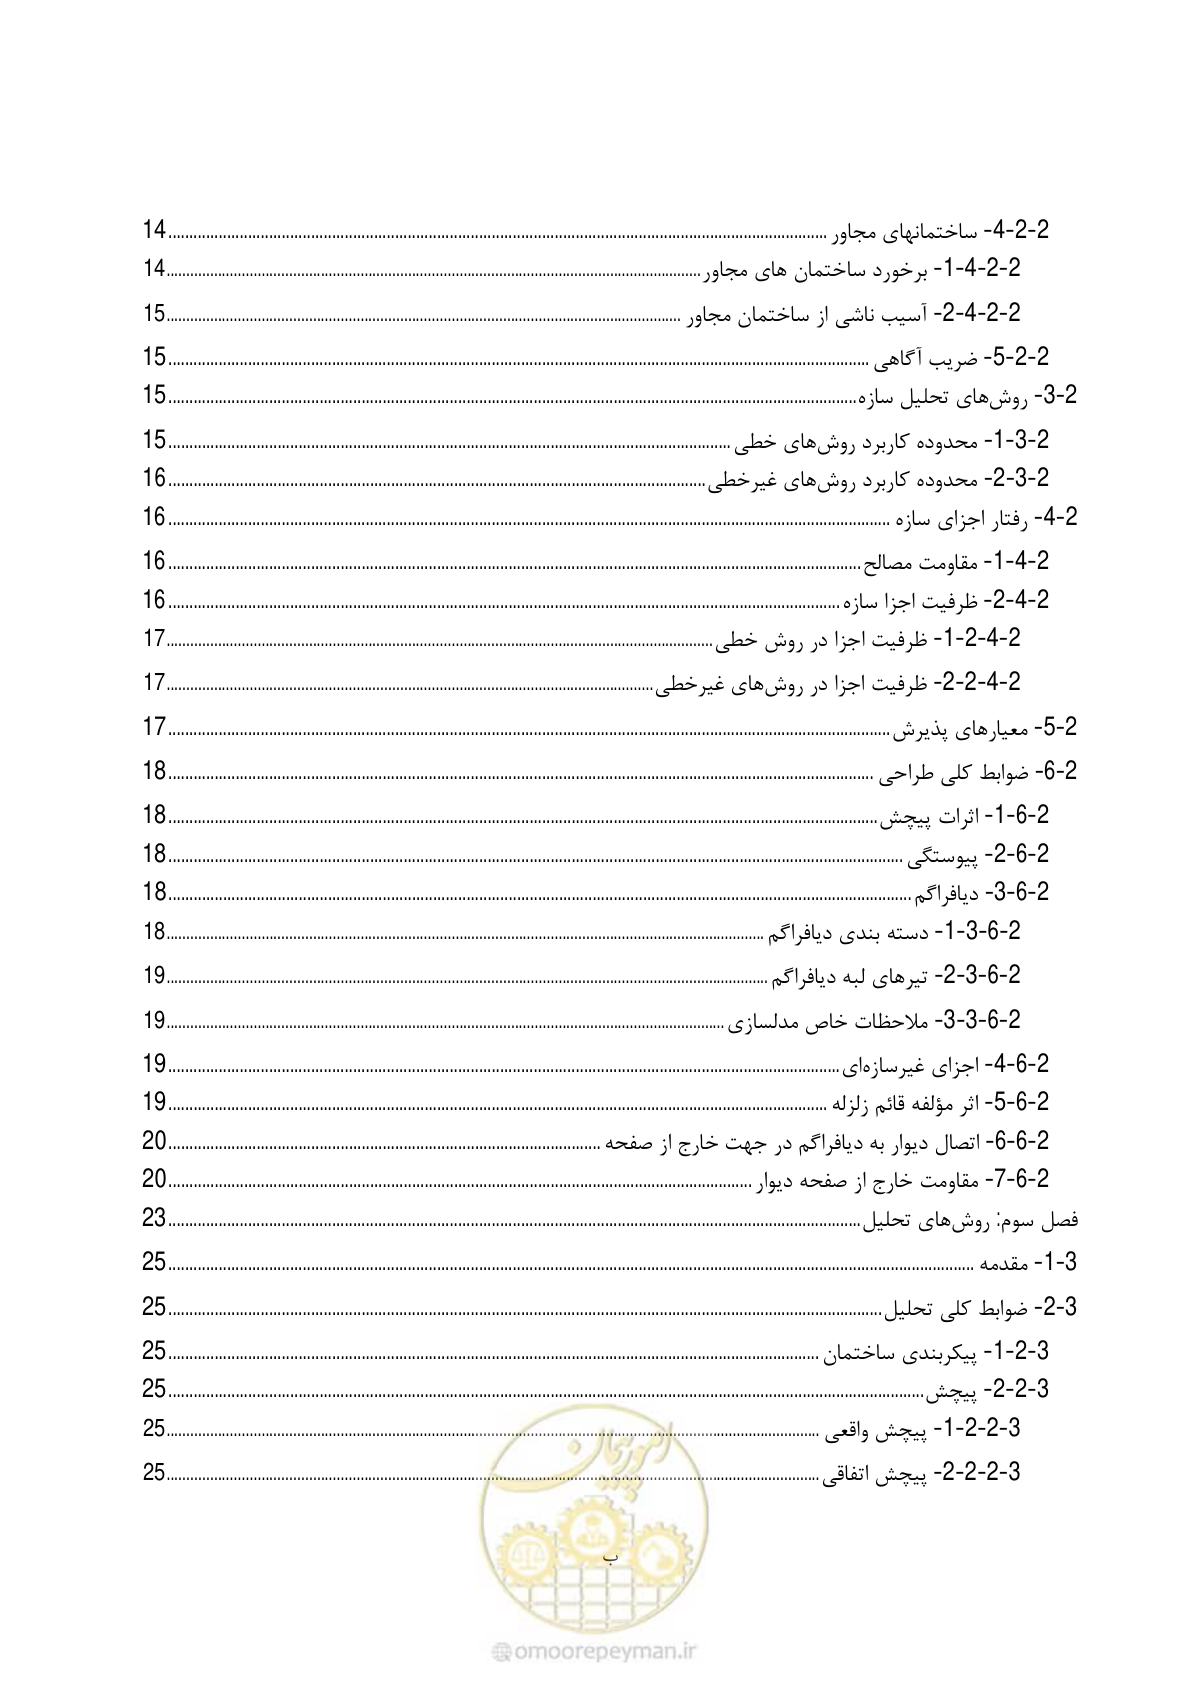 2-2-4- ساختمانهای مجاور ........ 14
2-2-4-1- برخورد ساختمان های مجاور ........ 14
2-2-4-2- آسیب ناشی از ساختمان مجاور ........ 15
2-2-5- ضریب آگاهی ........ 15
2-3- روش‌های تحلیل سازه ........ 15
2-3-1- محدوده کاربرد روش‌های خطی ........ 15
2-3-2- محدوده کاربرد روش‌های غیرخطی ........ 16
2-4- رفتار اجزای سازه ........ 16
2-4-1- مقاومت مصالح ........ 16
2-4-2- ظرفیت اجزا سازه ........ 16
2-4-2-1- ظرفیت اجزا در روش خطی ........ 17
2-4-2-2- ظرفیت اجزا در روش‌های غیرخطی ........ 17
2-5- معیارهای پذیرش ........ 17
2-6- ضوابط کلی طراحی ........ 18
2-6-1- اثرات پیچش ........ 18
2-6-2- پیوستگی ........ 18
2-6-3- دیافراگم ........ 18
2-6-3-1- دسته بندی دیافراگم ........ 18
2-6-3-2- تیرهای لبه دیافراگم ........ 19
2-6-3-3- ملاحظات خاص مدلسازی ........ 19
2-6-4- اجزای غیرسازه‌ای ........ 19
2-6-5- اثر مؤلفه قائم زلزله ........ 19
2-6-6- اتصال دیوار به دیافراگم در جهت خارج از صفحه ........ 20
2-6-7- مقاومت خارج از صفحه دیوار ........ 20
فصل سوم: روش‌های تحلیل ........ 23
3-1- مقدمه ........ 25
3-2- ضوابط کلی تحلیل ........ 25
3-2-1- پیکربندی ساختمان ........ 25
3-2-2- پیچش ........ 25
3-2-2-1- پیچش واقعی ........ 25
3-2-2-2- پیچش اتفاقی ........ 25
امور پیمان
ب
@omoorepeyman.ir